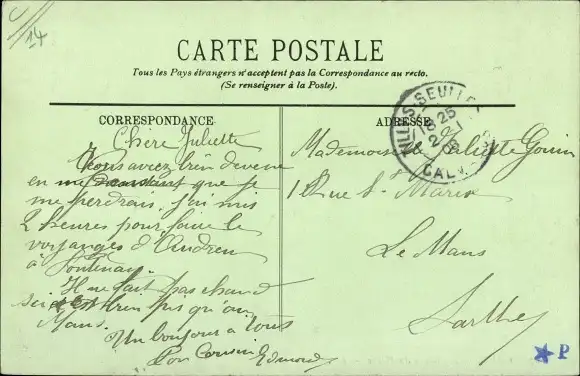 14
CARTE POSTALE
Tous les Pays étrangers n'acceptent pas la Correspondance au recto.
(Se renseigner à la Poste).
CORRESPONDANCE
ADRESSE
Chère Juliette
Vous aviez bien deviné
en me que je
me perdrais. J'ai mis
2 heures pour faire le
d'Andrieu
à Fontenay.
Il ne fait pas chaud
ici bien pis qu'au
Mans.
Un bonjour à tous
Ton Cousin Edmond
Mademoiselle Juliette
1 Rue St Marie
Le Mans
Sarthe
-SEULLES
25
CALV
P